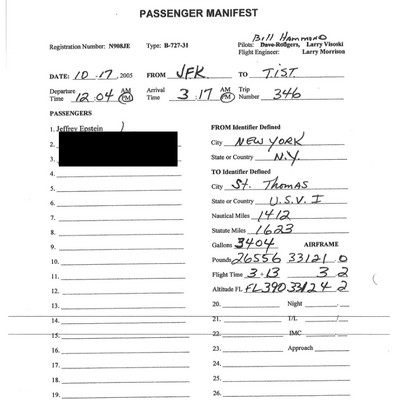 PASSENGER MANIFEST
Bill Hammond
Registration Number: N908JE Type: B-727-31 Pilots: Dave Rodgers, Larry Visoski
Flight Engineer: Larry Morrison
DATE: 10.17,2005 FROM JFK TO T.I.S.T.
Departure Time 12:04 AM PM Arrival Time 3:17 AM PM Trip Number 346
PASSENGERS
1. Jeffrey Epstein
2.
3.
4.
5.
6.
7.
8.
9.
10.
11.
12.
13.
14.
15.
16.
17.
18.
19.
FROM Identifier Defined
City NEW YORK
State or Country N.Y.
TO Identifier Defined
City St. Thomas
State or Country U.S.V.I
Nautical Miles 1412
Statute Miles 1623
Gallons 3404 AIRFRAME
Pounds 26556 33121 0
Flight Time 3+13 3 2
Altitude FL FL390 33124 2
20. Night
21. I/L
22. IMC
23. Approach
24.
25.
26.